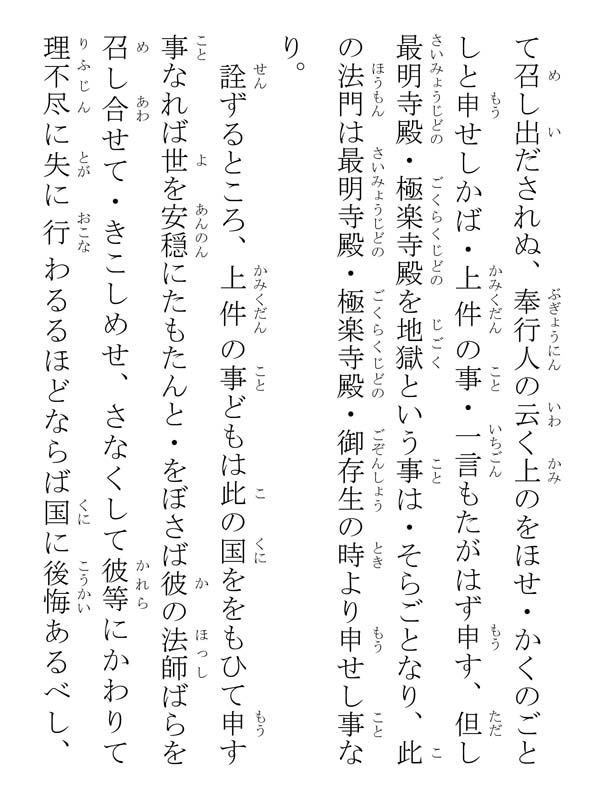 て召し出だされぬ、奉行人の云く上のをほせ・かくのごと
しと申せしかば・上件の事・一言もたがはず申す、但し
最明寺殿・極楽寺殿を地獄という事は・そらごとなり、此
の法門は最明寺殿・極楽寺殿・御存生の時より申せし事な
り。
詮ずるところ、上件の事どもは此の国ををもひて申す
事なれば世を安穏にたもたんと・をぼさば彼の法師ばらを
召し合せて・きこしめせ、さなくして彼等にかわりて
理不尽に失に行わるるほどならば国に後悔あるべし、